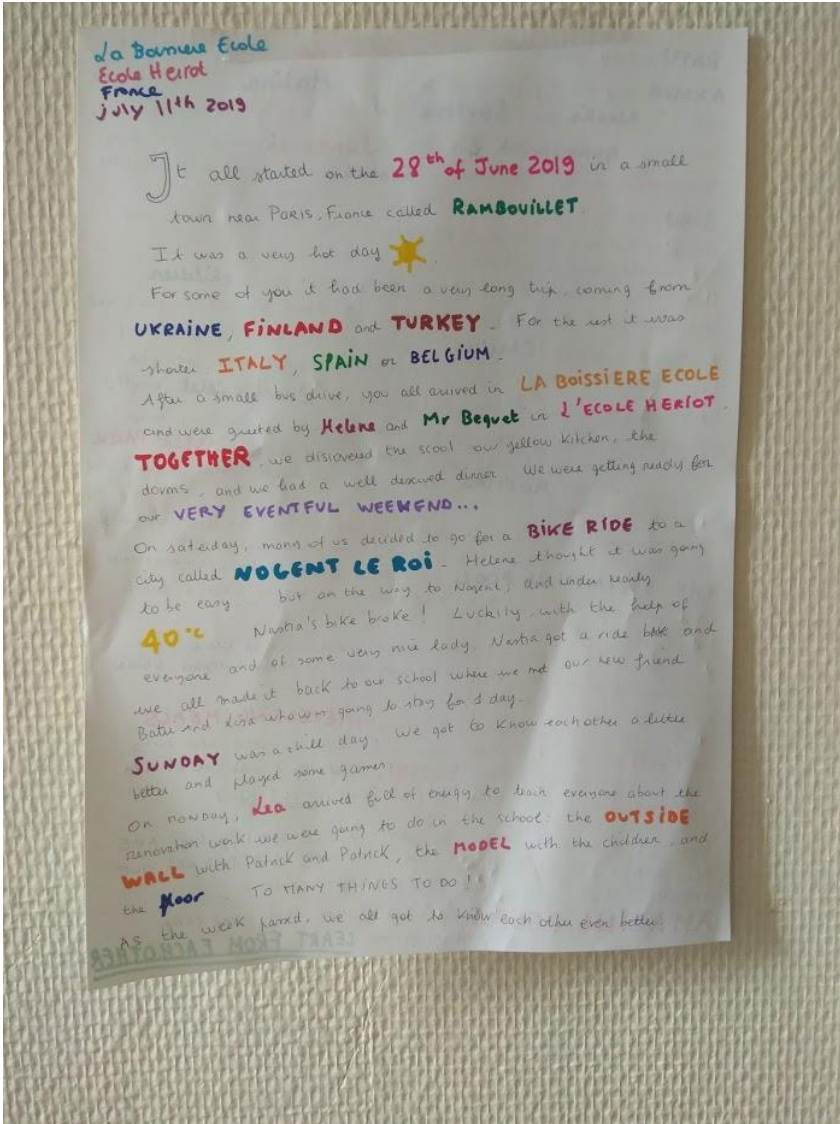 La Boissiere Ecole
Ecole Heirot
France
july 11th 2019
It all started on the 28th of June 2019 in a small
town near PARIS, France called RAMBOUILLET
It was a very hot day.
For some of you it had been a very long trip, coming from
UKRAINE, FINLAND and TURKEY. For the rest it was
shorter ITALY, SPAIN or BELGIUM.
After a small bus drive, you all arrived in LA BOISSIERE ECOLE
and were greeted by Helene and Mr Bequet in L'ECOLE HERIOT.
TOGETHER, we discovered the scool our yellow kitchen, the
dorms, and we had a well deserved dinner. We were getting ready for
our VERY EVENTFUL WEEKEND...
On saterday, many of us decided to go for a BIKE RIDE to a
city called NOGENT LE ROI. Helene thought it was going
to be easy... but on the way to Nogent, and under nearly
40°C Nastia's bike broke! Luckily, with the help of
everyone and of some very nice lady, Nastia got a ride back and
we all made it back to our school where we met our new friend
Batu and going to stay for 1 day.
SUNDAY was a chill day. We got to know each other a little
better and played some games.
On MONDAY, Lea arrived full of energy to teach everyone about the
renovation work we were going to do in the school: the OUTSIDE
WALL with Patrick and Patrick, the MODEL with the children, and
the floor TO MANY THINGS TO DO!
AS the week passed, we all got to know each other even better.
LEART FROM EACHOTHER